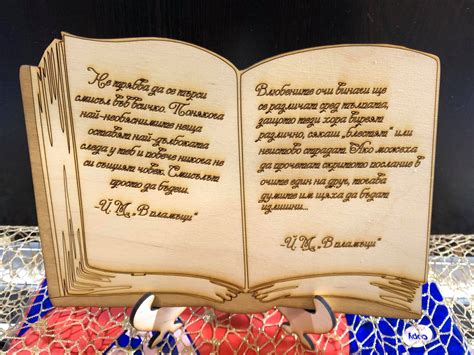 Не трябва да се търси
смисъл във всичко. Понякога
най-необяснимите неща
оставят най-дълбоката
следа у теб и повече никога не
си същият човек. Смисълът
просто да бъдеш.
-Й. М. „В пламъци“
Влюбените очи винаги ще
се различат сред тълпата,
защото тези хора виреят
различно, сякаш „блестят“ или
неистово страдат. Ако можеха
да прочетат скритото послание в
очите един на друг, тогава
думите им щяха да бъдат
излишни...
-Й. М. „В пламъци“